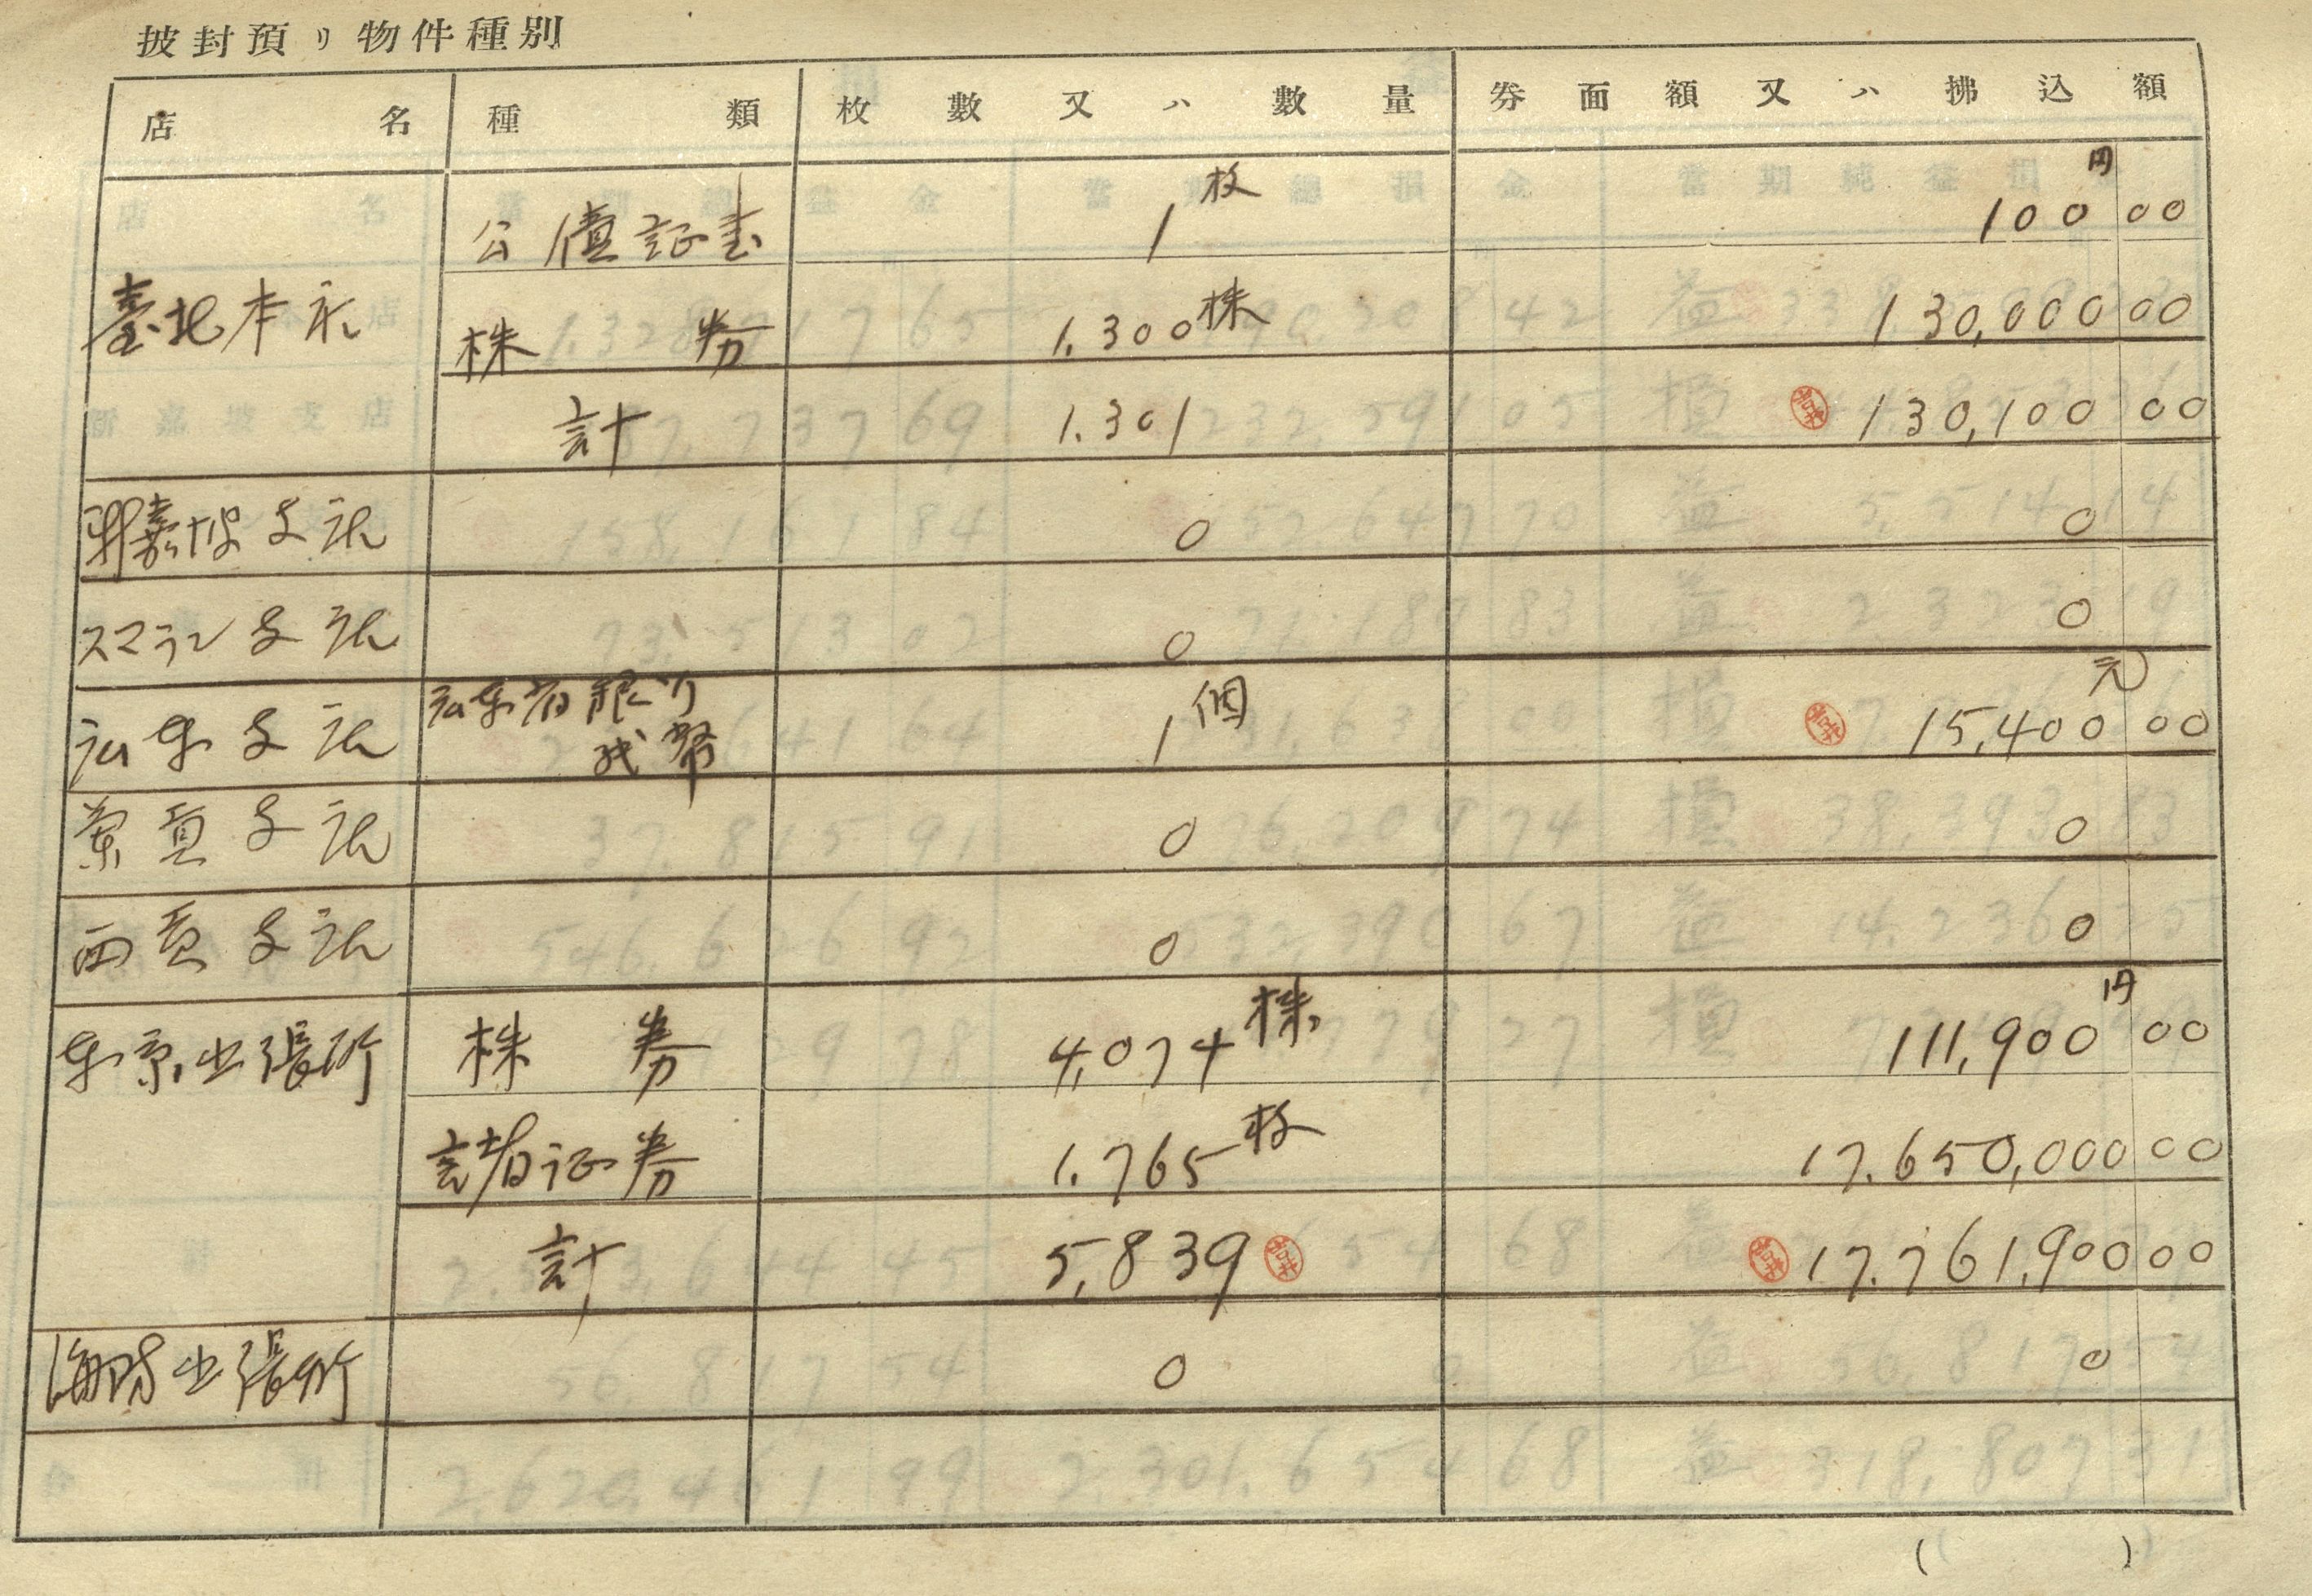 披封預リ物件種別
店名 種類 枚數又ハ數量 券面額又ハ拂込額
臺北本店 公債証書 1枚 100円00
株券 1.300株 130,000 00
計 1.301 130,100 00
新嘉坡支店 0 0
スマラン支店 0 0
広東支店 広東省銀行 1個 15,400元00
紙幣
蘭貢支店 0 0
西貢支店 0 0
東京出張所 株券 4,074株 111,900円00
諸証券 1.765枚 17.650,000 00
計 5,839 17.761,900 00
海防出張所 0 0
( )